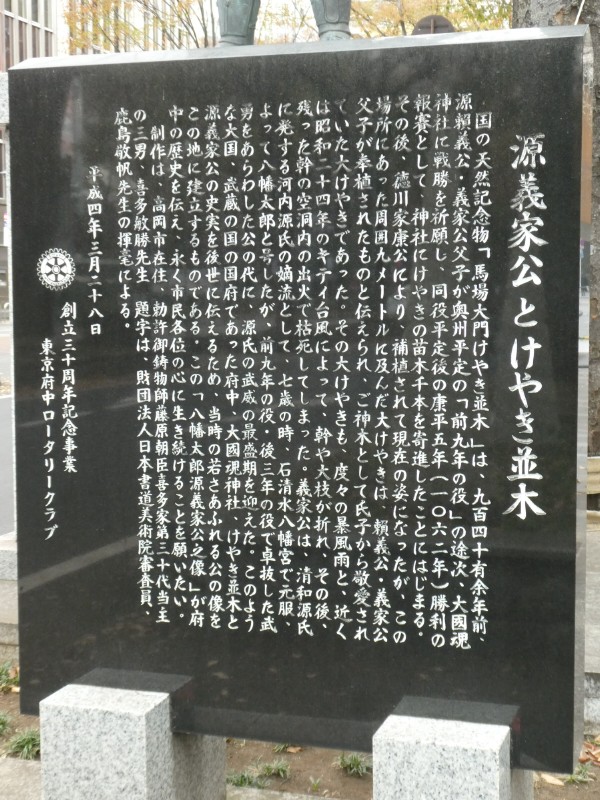 源義家公とけやき並木
国の天然記念物「馬場大門けやき並木」は、九百四十有余年前、
源頼義公・義家公父子が奥州平定の「前九年の役」の途次、大國魂
神社に戦勝を祈願し、同役平定後の康平五年（一〇六二年）勝利の
報賽として　神社にけやきの苗木千本を寄進したことにはじまる。
その後、徳川家康公により、補植されて現在の姿になったが、この
場所にあった周囲九メートルに及んだ大けやきは、頼義公・義家公
父子が奉植されたものと伝えられ、ご神木として氏子から敬愛され
ていた大けやきであった。その大けやきも、度々の暴風雨と、近く
は昭和二十四年のキティ台風によって、幹や大枝が折れ、その後、
残った幹の空洞内の出火で枯死してしまった。義家公は、清和源氏
に発する河内源氏の嫡流として、七歳の時、石清水八幡宮で元服、
よって八幡太郎と号したが、前九年の役・後三年の役で卓抜した武
勇をあらわした公の代に、源氏の武威の最盛期を迎えた。このよう
な大国　武蔵の国の国府であった府中、大國魂神社、けやき並木と
源義家公の史実を後世に伝えるため、当時の若さあふれる公の像を
この地に建立するものである。この「八幡太郎源義家公之像」が府
中の歴史を伝え、永く市民各位の心に生き続けることを願いたい。
制作は、高岡市在住、勅許御鋳物師藤原朝臣喜多家第三十代当主
の三男、喜多敏勝先生、題字は、財団法人日本書道美術院審査員、
鹿島敬帆先生の揮毫による。
平成四年三月二十八日
創立三十周年記念事業
東京府中ロータリークラブ